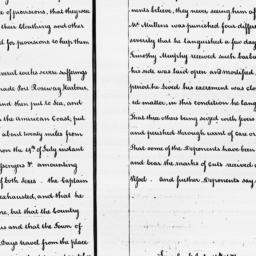 of provisions, that they were
their Cloathing and other
d for provisions to keep them
veral weeks severe sufferings
made Port Roseway Harbour,
and then put to sea, and
the American Coast, put
about twenty miles from
on the 14th of July instant
ssengers &c. amounting
of both Sexes. The Captain
exhausted, and that he
re, but that the Country
us and that the Town of
Days travel from the place
nents believe, they never seeing him af
Mr. Mullens was punished four differen
severity that he languished a few day
Timothy Murphy received such barba
his side was laid open and mortified,
period he lived his excrement was
ed matter, in this condition he lang
That thro others being seized with fevers
and perished through want of care or
That some of the Deponents have been
and bear the marks of Cuts received
lifed. And further Deponents say